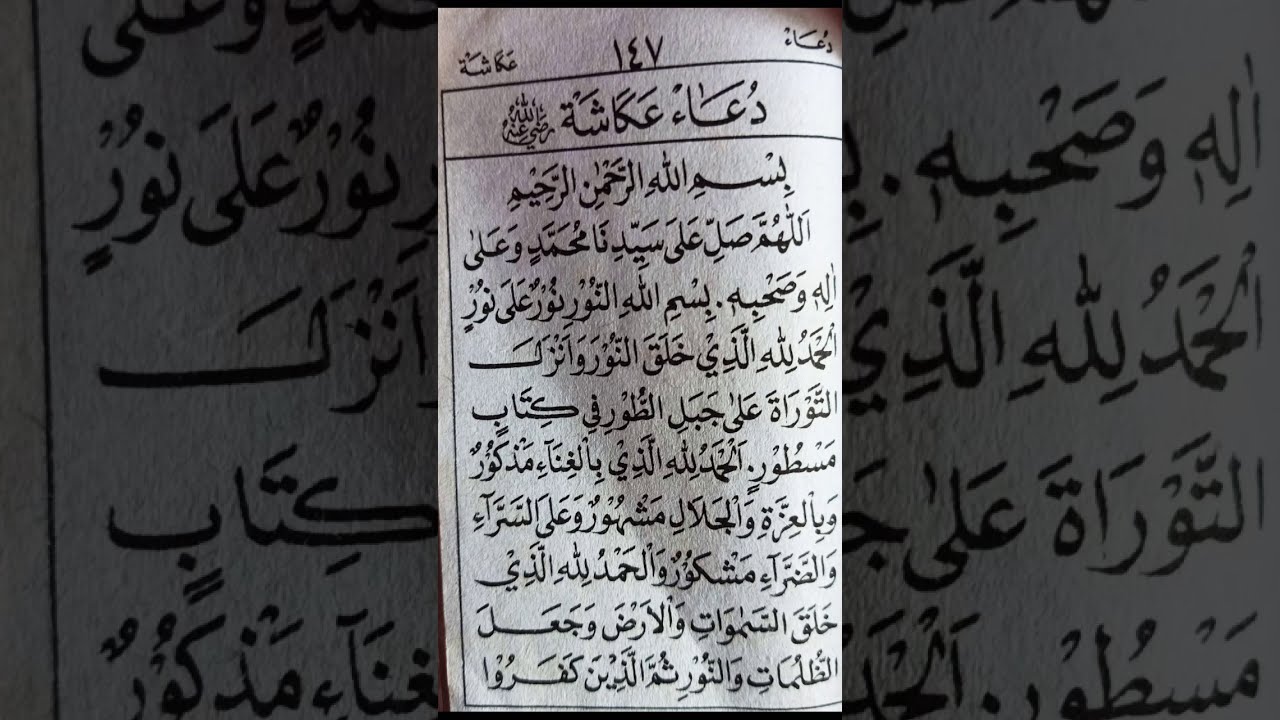 دُعَاءْ
١٤٧
عَكَاشَة
دُعَاءْ عَكَاشَةْ رَضِيَ اللهُ عَنْهُ
بِسْمِ اللهِ الرَّحْمٰنِ الرَّحِيْمِ
اَللّٰهُمَّ صَلِّ عَلَى سَيِّدِنَا مُحَمَّدٍ وَعَلٰى
اٰلِهٖ وَصَحْبِهٖ. بِسْمِ اللهِ النُّوْرِ نُوْرٌ عَلَى نُوْرٍ
اَلْحَمْدُ لِلّٰهِ الَّذِيْ خَلَقَ النُّوْرَ وَاَنْزَلَ
التَّوْرَاةَ عَلٰى جَبَلِ الطُّوْرِ فِي كِتَابٍ
مَسْطُوْرٍ. اَلْحَمْدُ لِلّٰهِ الَّذِي بِالْغِنَآءِ مَذْكُوْرٌ
وَبِالْعِزَّةِ وَالْجَلَالِ مَشْهُوْرٌ وَعَلَى السَّرَّآءِ
وَالضَّرَّآءِ مَشْكُوْرٌ وَالْحَمْدُ لِلّٰهِ الَّذِيْ
خَلَقَ السَّمٰوَاتِ وَالْاَرْضَ وَجَعَلَ
الظُّلُمَاتِ وَالنُّوْرِ ثُمَّ الَّذِيْنَ كَفَرُوْا